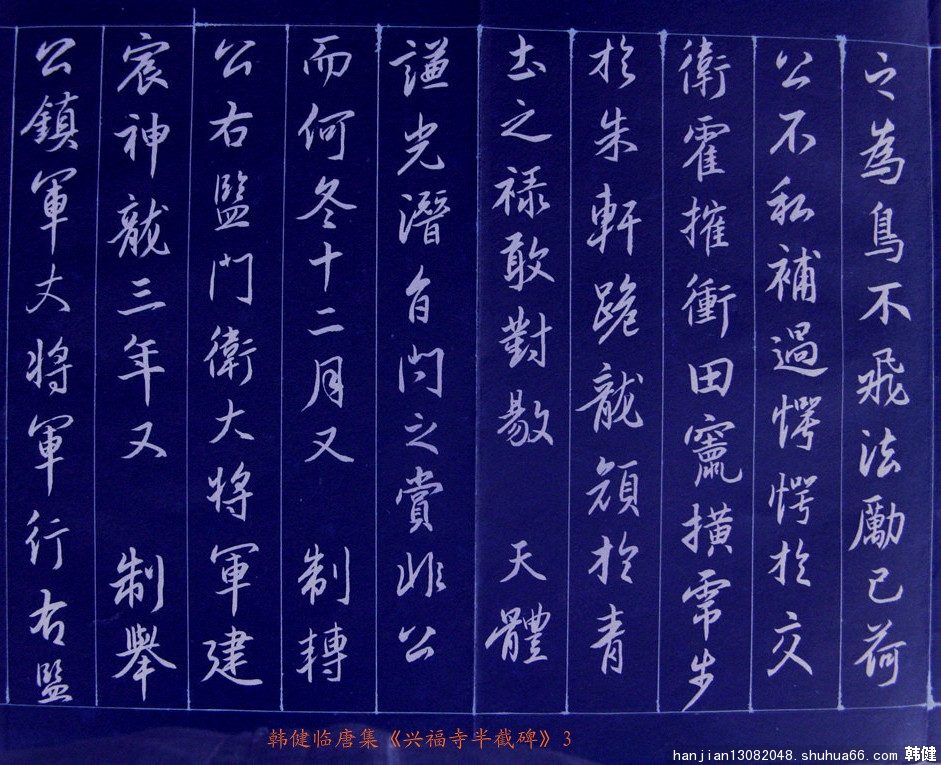 之為鳥不飛法勵已荷
公不私補過愕愕於交
衛霍摧衝田撗帟步
於朱軒跪龍顏於青
土之祿敢對敭 天體
謙光潛自之賞非公
而何冬十二月又 制轉
公右監門衛大將軍建
宸神龍三年又 制舉
公鎮軍大將軍行右監
韩健临唐集《兴福寺半截碑》3
hanjian13082048.shuhua66.com 韩健